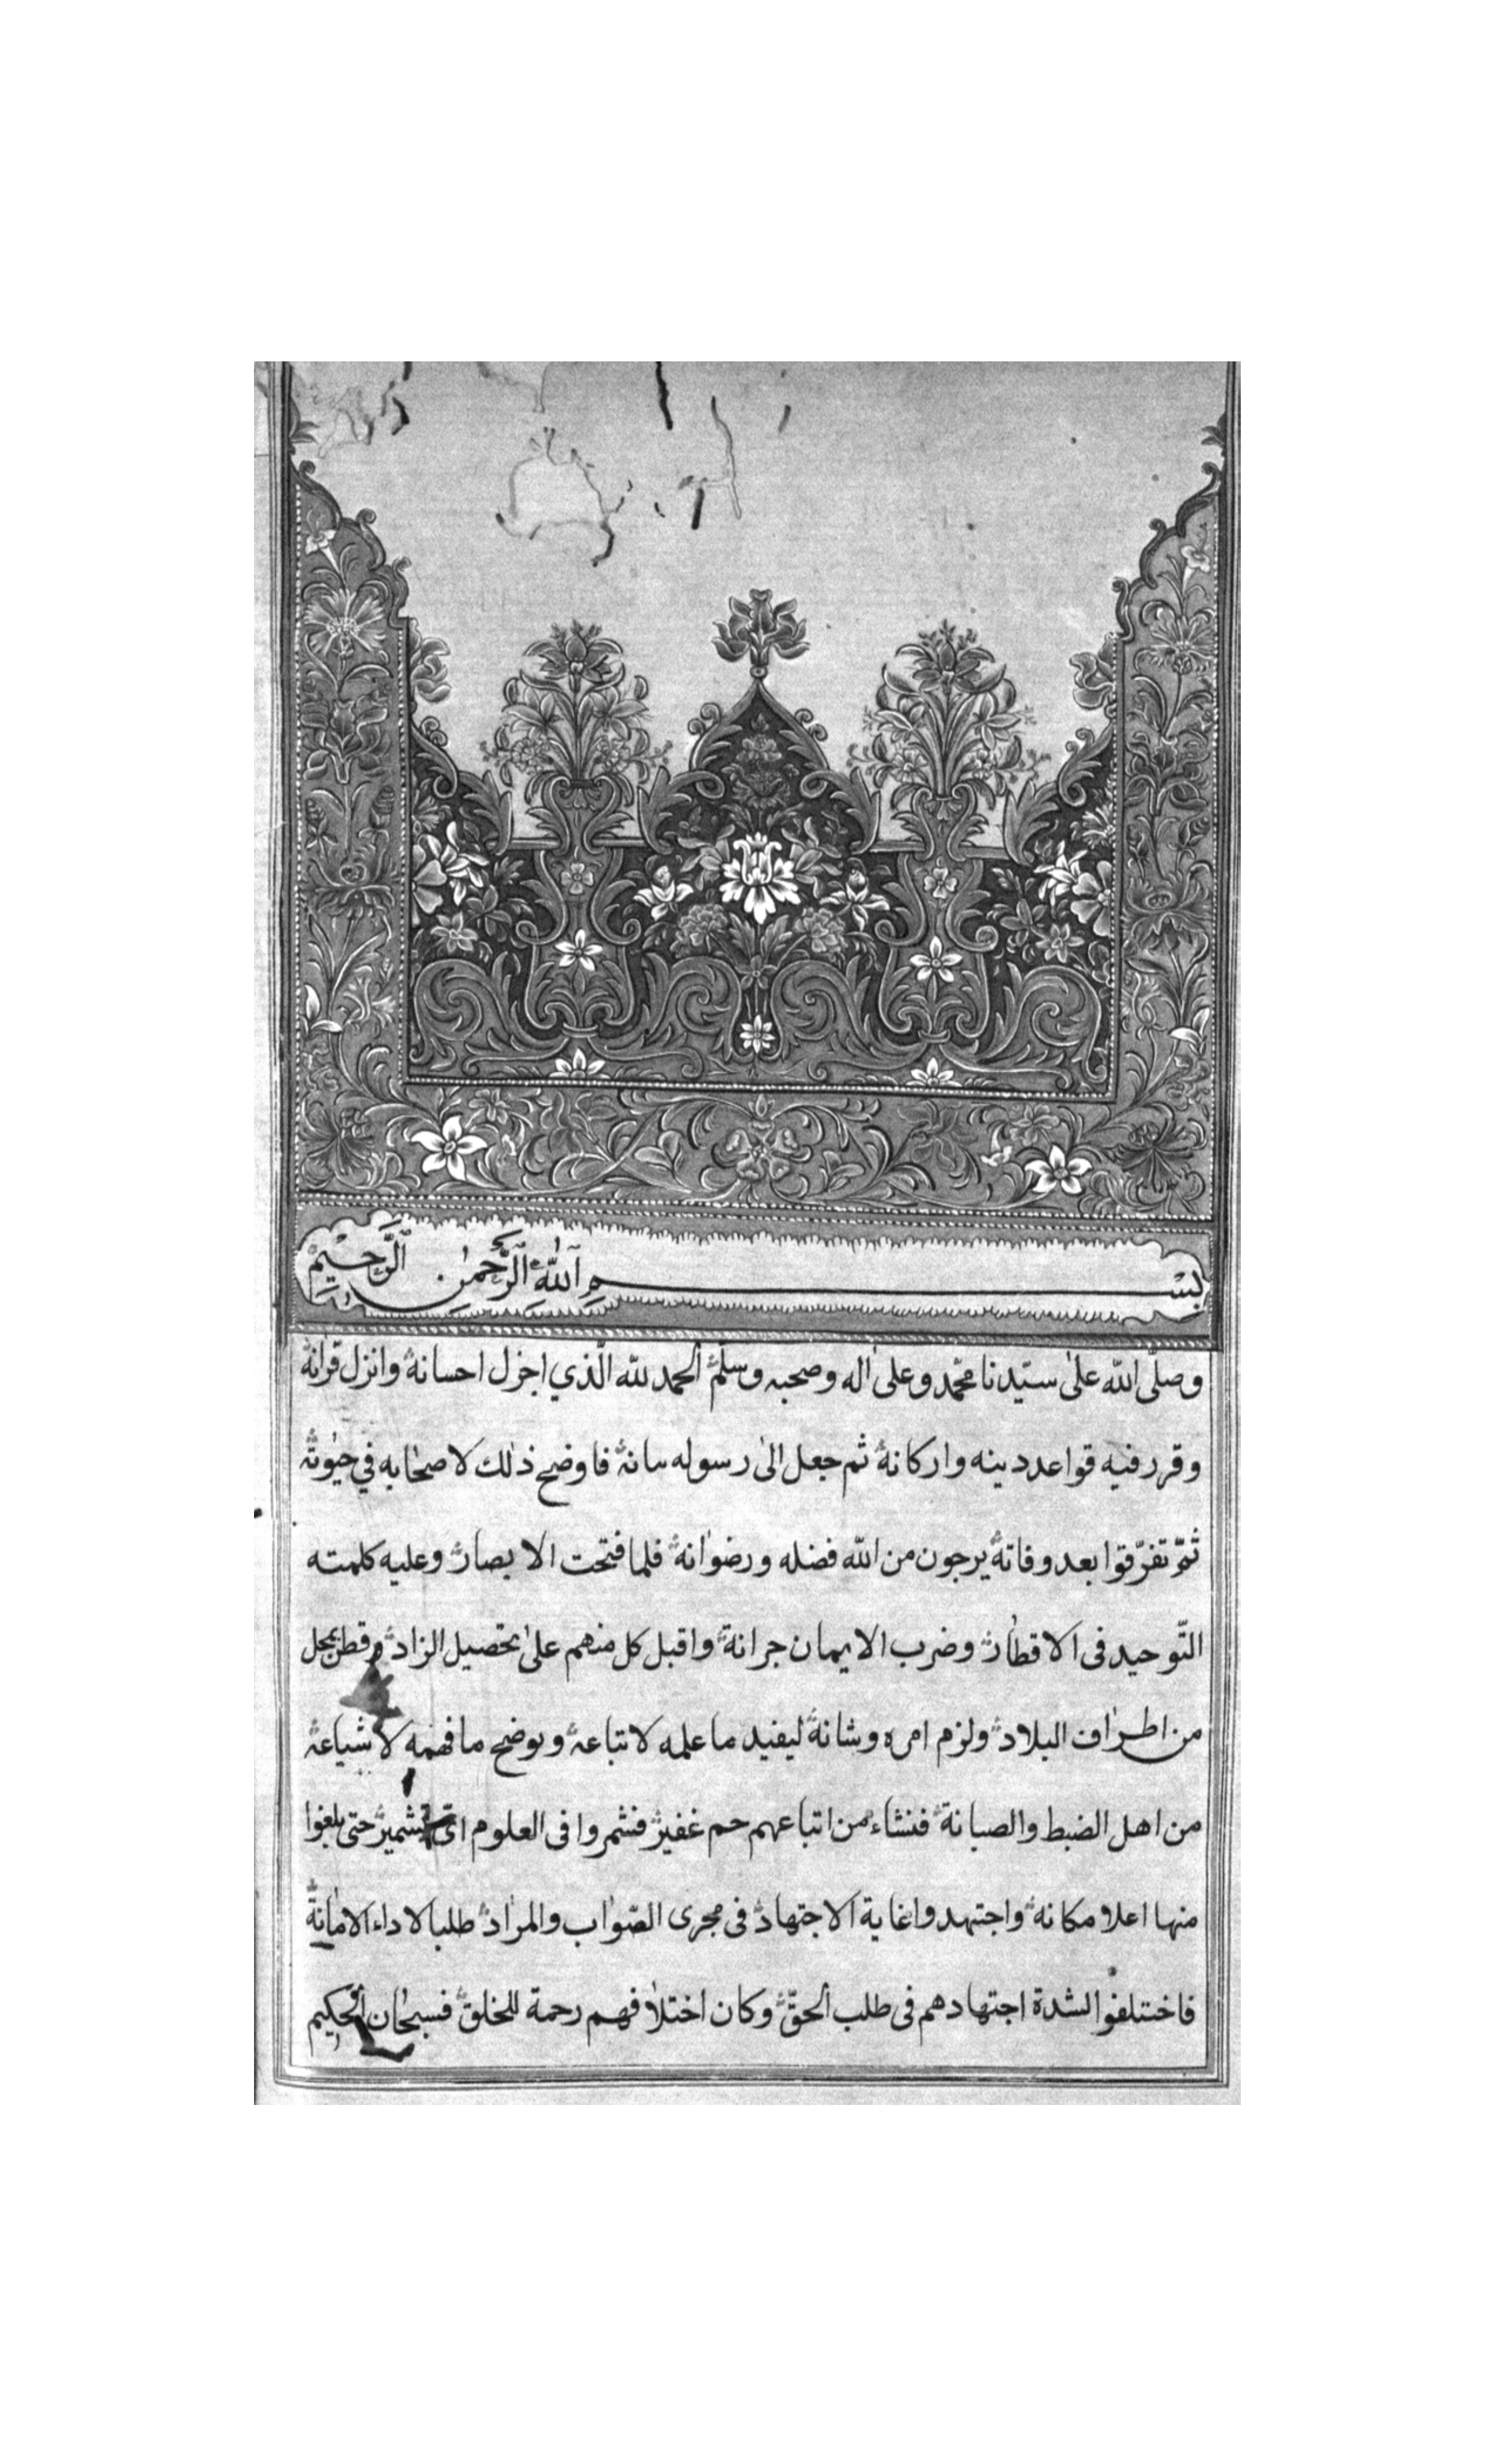 بِسْمِ ٱللَّهِ ٱلرَّحْمٰنِ ٱلرَّحِيمِ
وصلّى اللّه علىٰ سيّدنا محمّد وعلىٰ اله وصحبه وسلّم الحمد للّه الّذي اجزل احسانه وانزل قرانه
وقرر فيه قواعد دينه واركانه ثم جعل الىٰ رسوله بيانه فاوضح ذٰلك لاصحٰابه في حيٰوته
ثمّ تفرّقوا بعد وفاته يرجون من اللّه فضله ورضوٰانه فلما فتحت الابصار وعليه كلمته
التّوحيد فى الاقطٰار وضرب الايمان جرانه واقبل كل منهم علىٰ تحصيل الزاد وقطن بمحل
من اطرٰاف البلاد ولزم امره وشانه ليفيد ما علمه لاتباعه ويوضح ما فهمه لاشياعه
من اهل الضبط والصيانة فنشاء من اتباعهم جم غفير فشمروا فى العلوم اى تشمير حتى بلغوا
منها اعلا مكانه واجتهدوا غاية الاجتهاد فى مجرى الصّوٰاب والمرٰاد طلبا لاداء الامٰانة
فاختلفوا لشدة اجتهادهم فى طلب الحقّ وكان اختلٰافهم رحمة للخلق فسبحٰان الحكيم